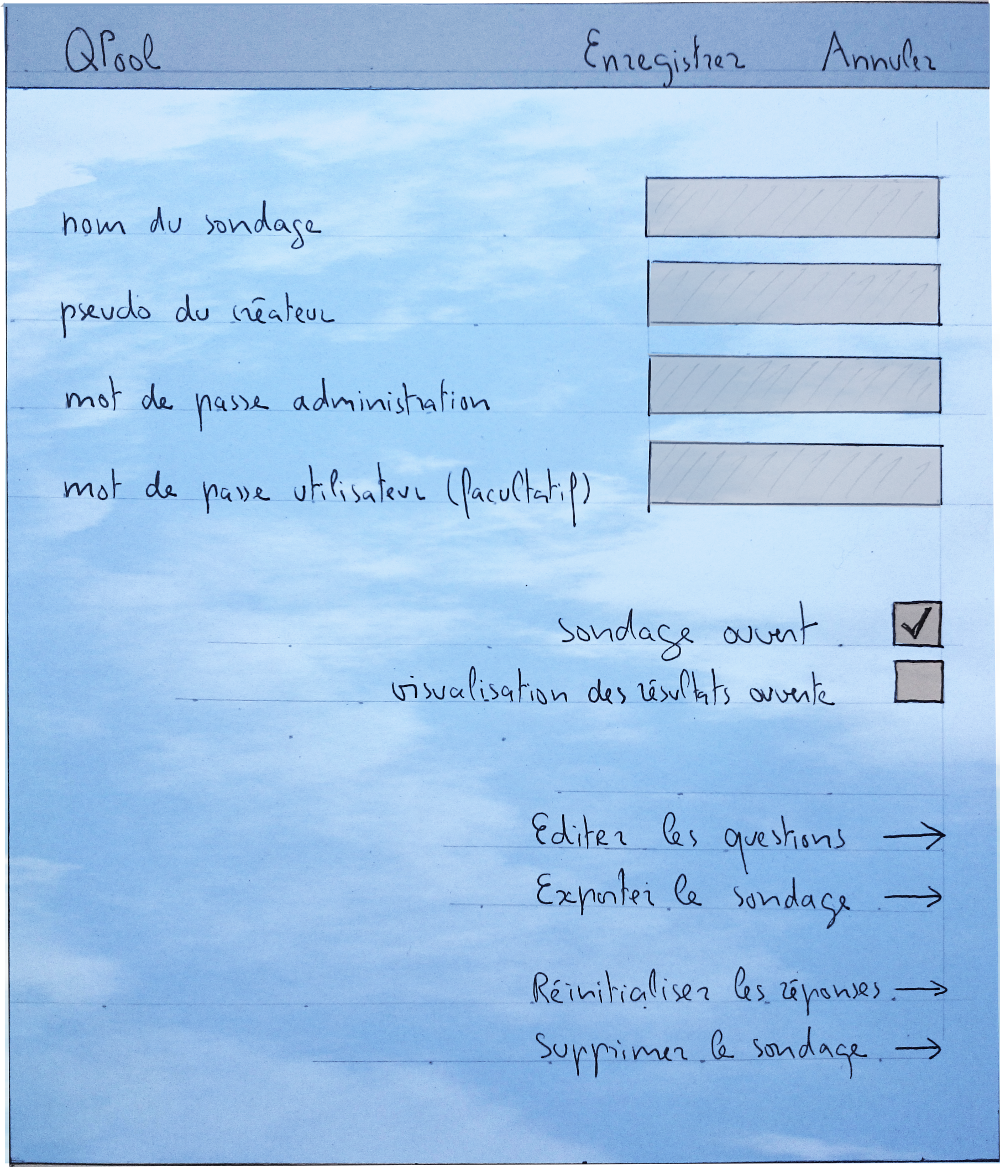 QPool Enregistrer Annuler
nom du sondage
pseudo du créateur
mot de passe administration
mot de passe utilisateur (facultatif)
sondage ouvert
visualisation des résultats ouverte
Editer les questions →
Exporter le sondage →
Réinitialiser les réponses →
Supprimer le sondage →